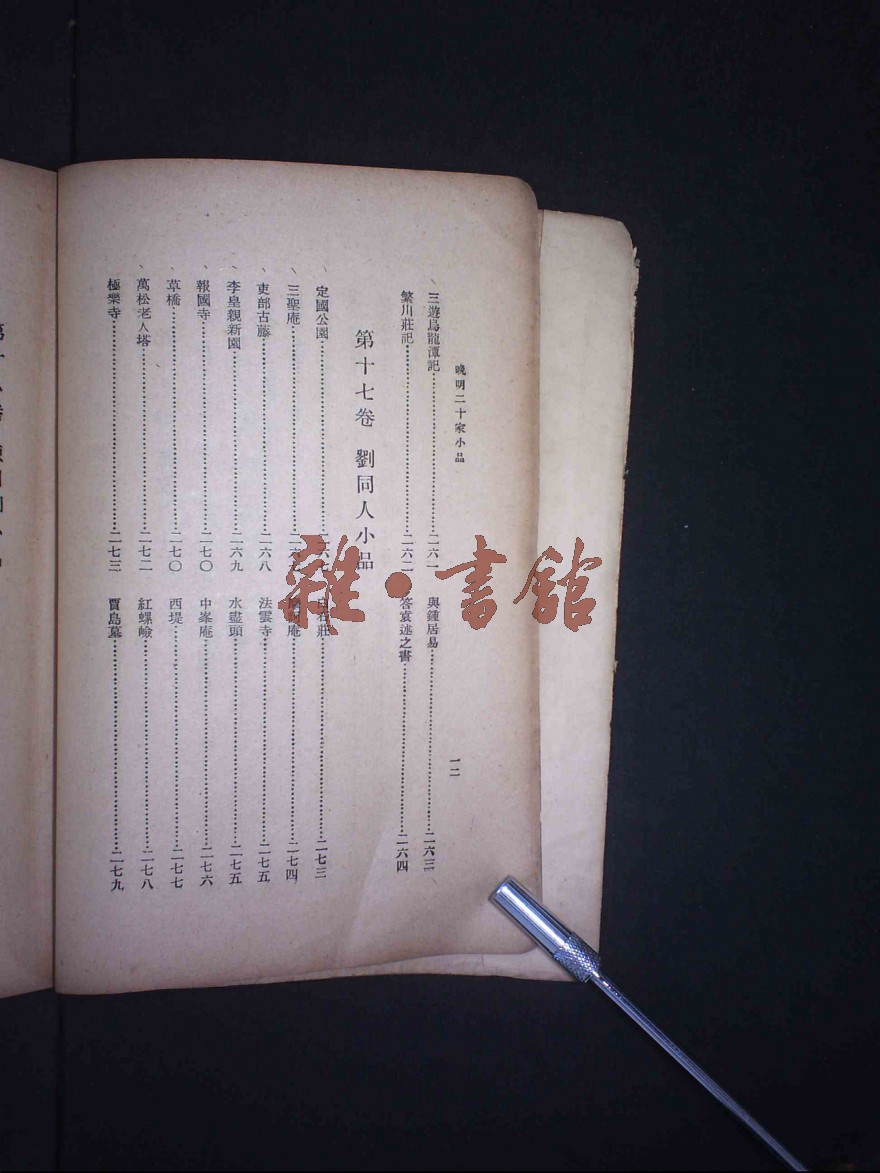 晚明二十家小品
一二
三遊烏龍潭記……二六一
與鍾居易……二六三
繁川莊記……二六二
答袁述之書……二六四
第十七卷 劉同人小品
定國公園……二六七
白石莊……二七三
三聖庵……二六
庵……二七四
吏部古藤……二六八
法雲寺……二七五
李皇親新園……二六九
水盡頭……二七五
報國寺……二七〇
中峯庵……二七六
草橋……二七〇
西堤……二七七
萬松老人塔……二七二
紅螺嶮……二七八
極樂寺……二七三
賈島墓……二七九
雜·書館